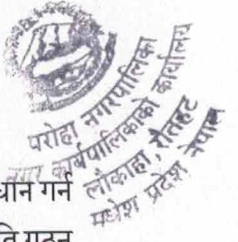 परोहा नगरपालिका
नगर कार्यपालिकाको कार्यालय
लौकाहा, रौतहट
मधेश प्रदेश नेपाल
धान गर्न
ति गठन